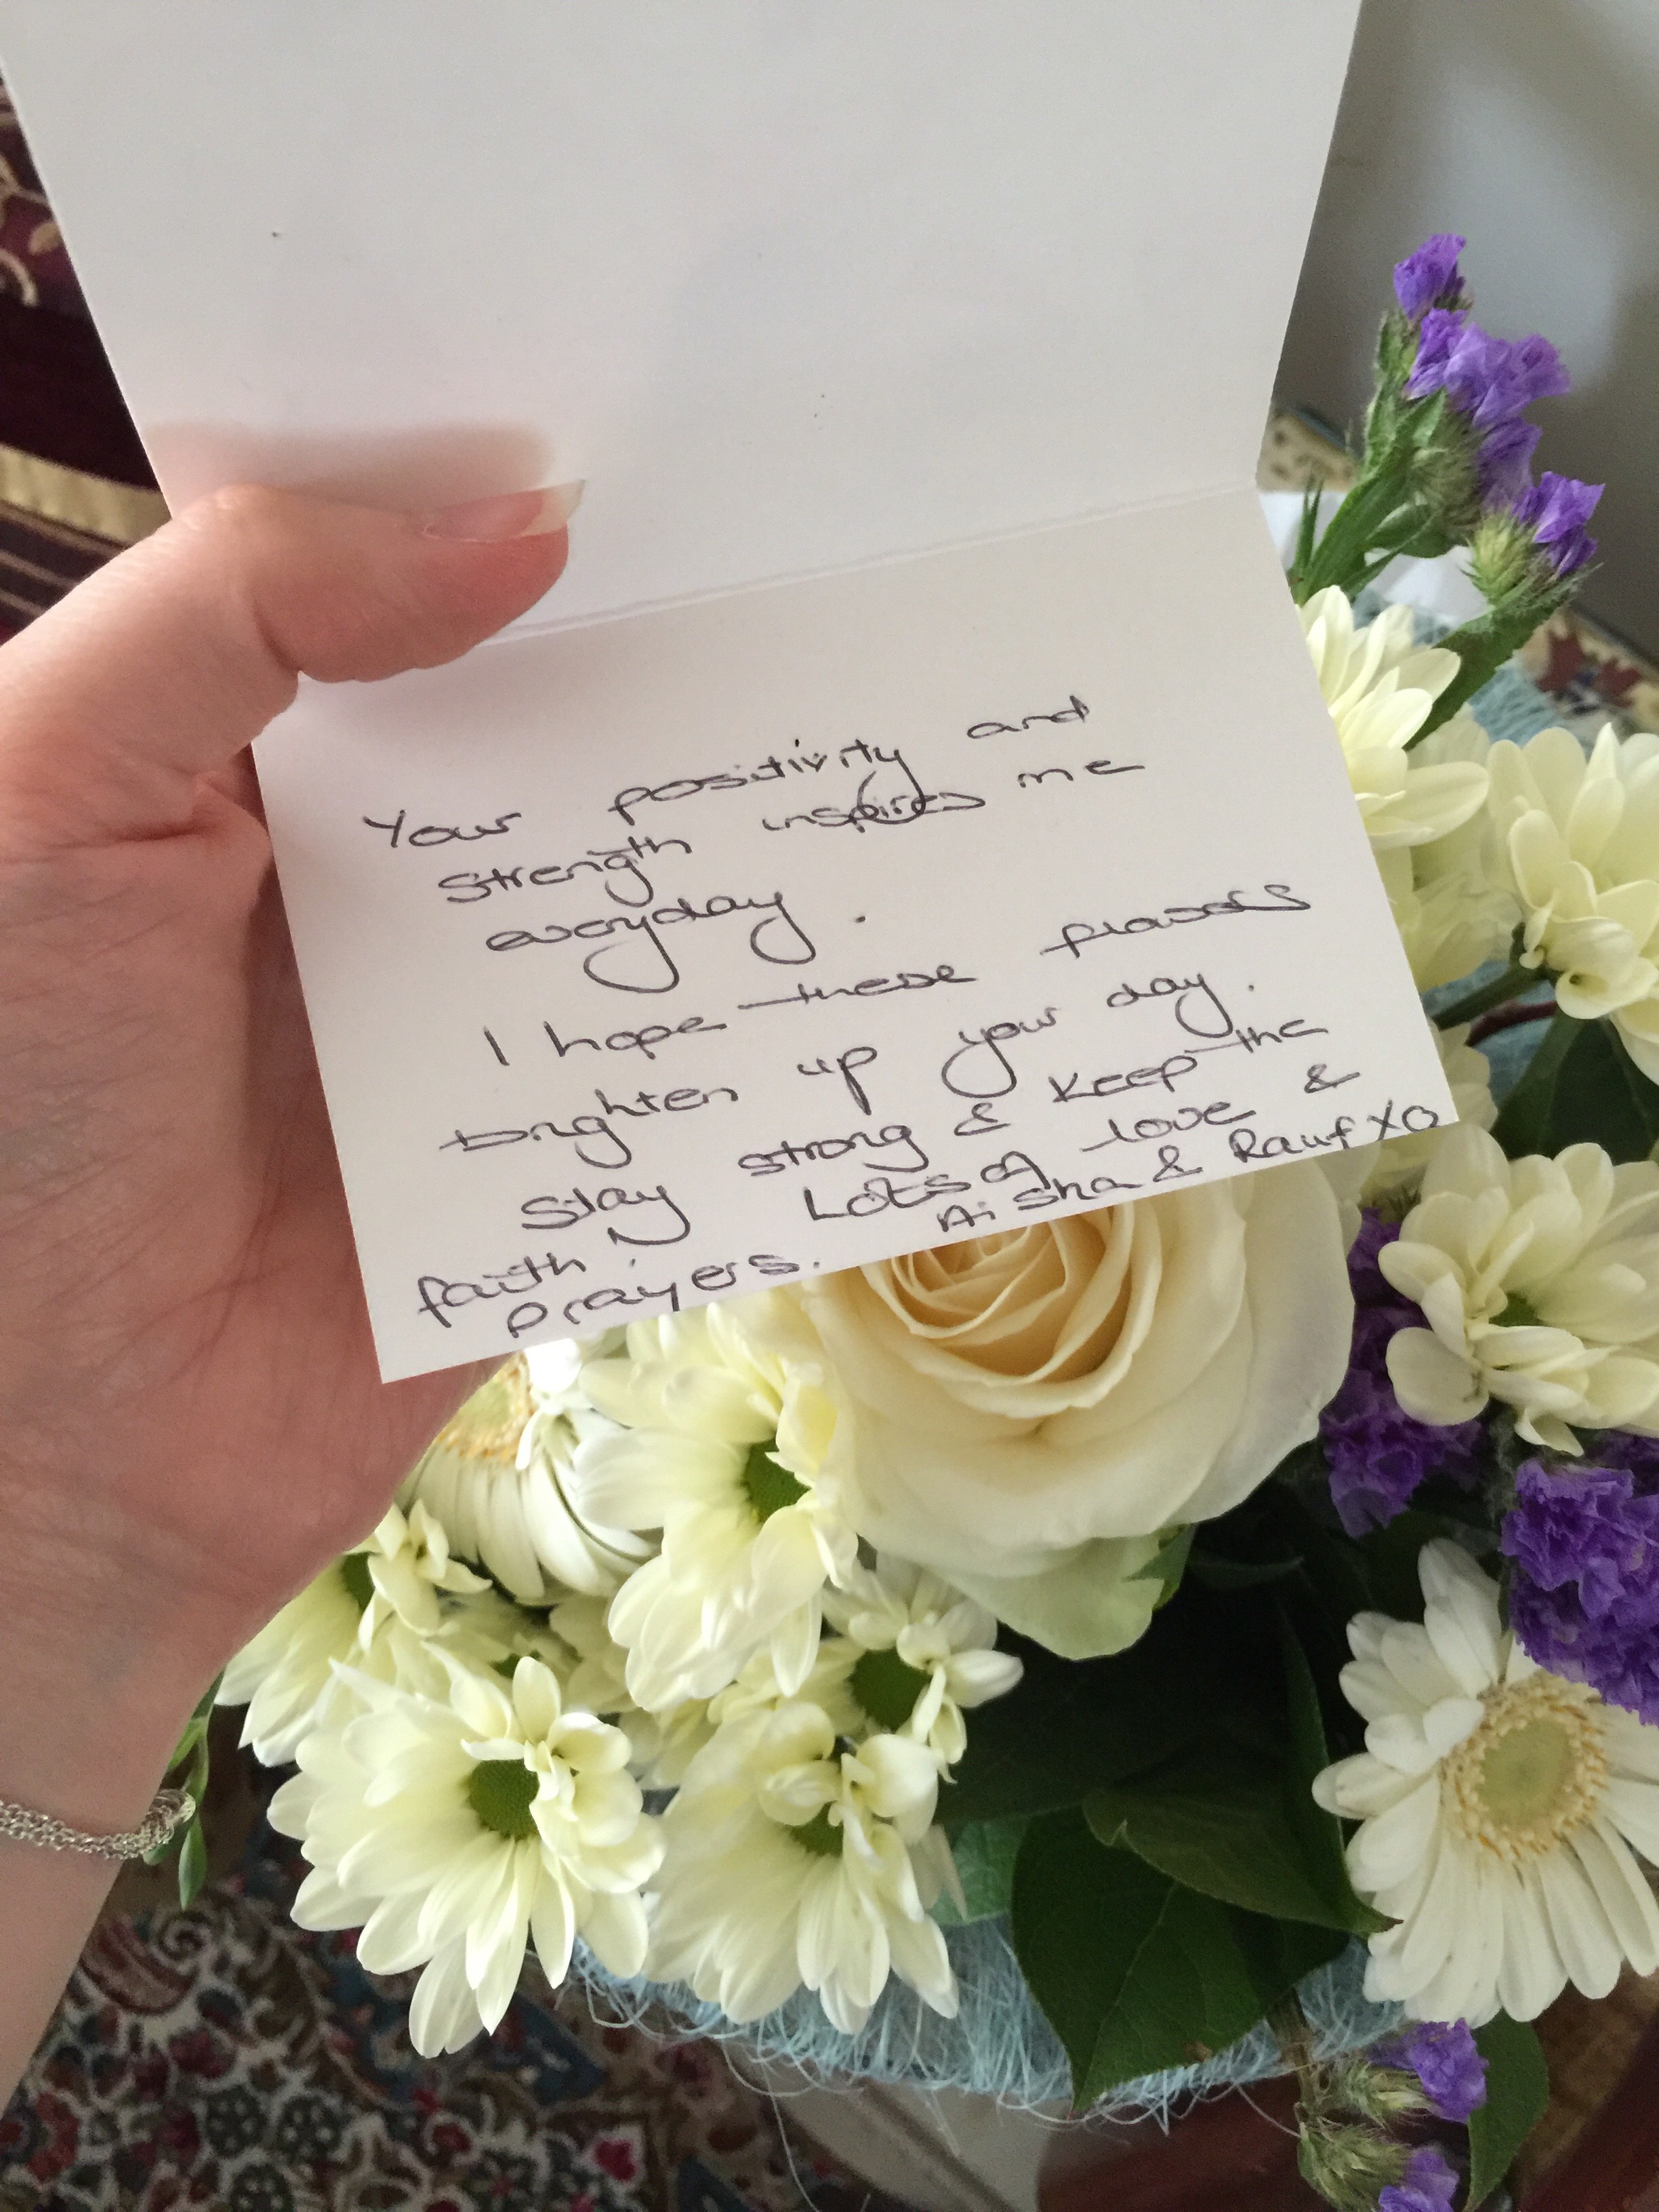 Your positivity and
strength inspires me
everyday.
I hope these flowers
brighten up your day.
Stay strong & keep the
faith. Lots of love &
prayers. Aisha & Rauf XO